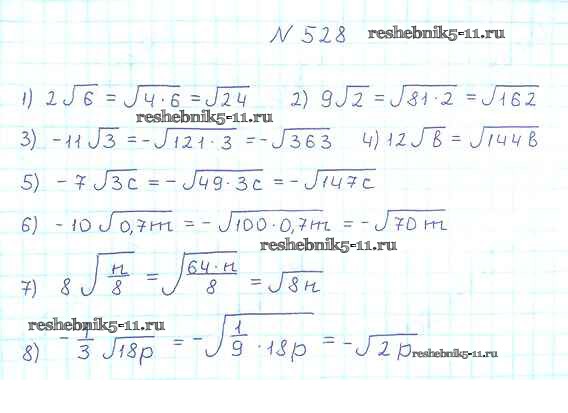 N 528 reshebnik5-11.ru
1) 2√6 = √4·6 = √24 2) 9√2 = √81·2 = √162
reshebnik5-11.ru
3) -11√3 = -√121·3 = -√363 4) 12√b = √144b
5) -7√3c = -√49·3c = -√147c
6) -10√0,7m = -√100·0,7m = -√70m
reshebnik5-11.ru
7) 8√n/8 = √64·n/8 = √8n
reshebnik5-11.ru
8) -1/3√18p = -√1/9·18p = -√2p reshebnik5-11.ru